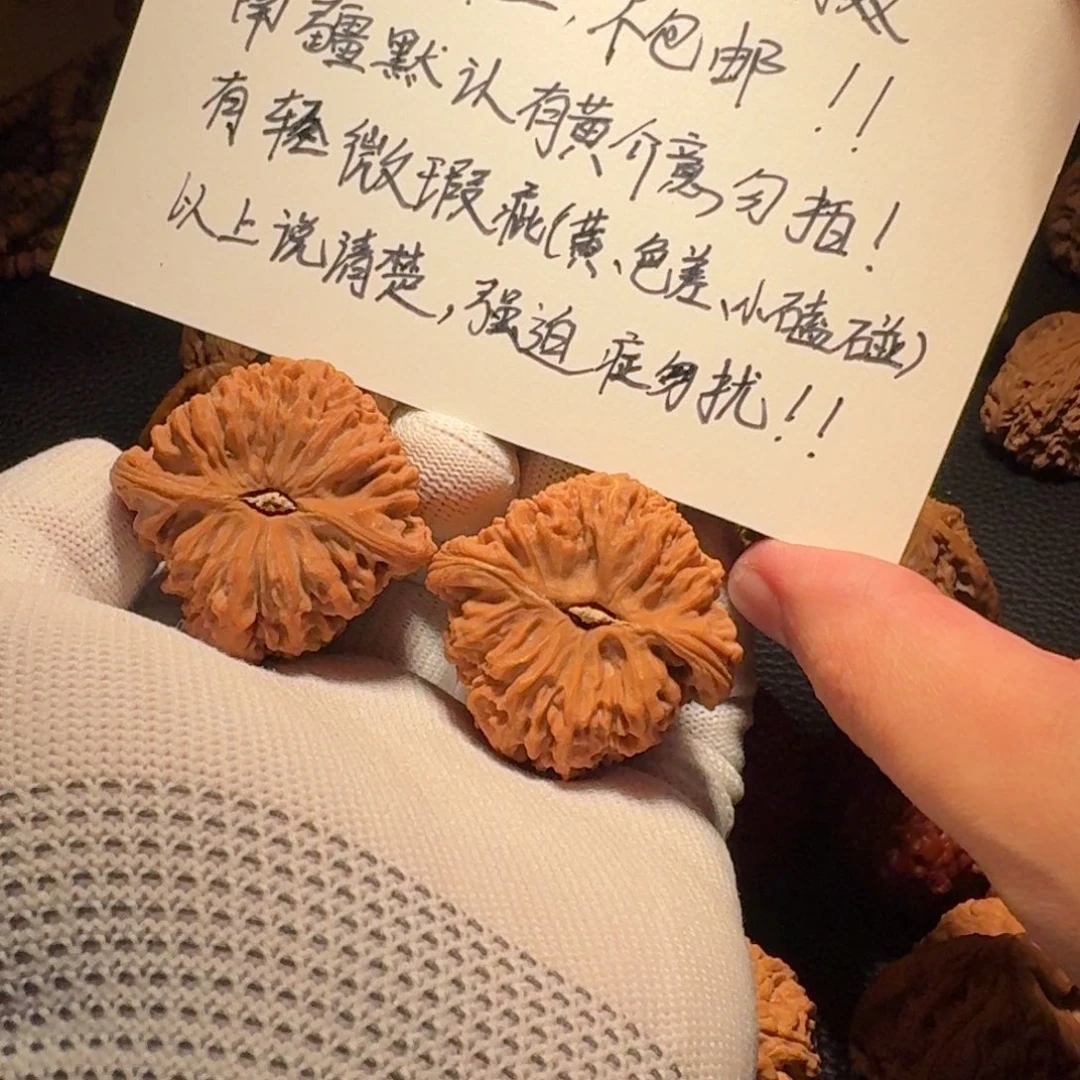 ，不包邮！！
南疆默认有黄介意勿拍！
有轻微瑕疵(黄、色差、小磕碰)
以上说清楚，强迫症勿扰！！